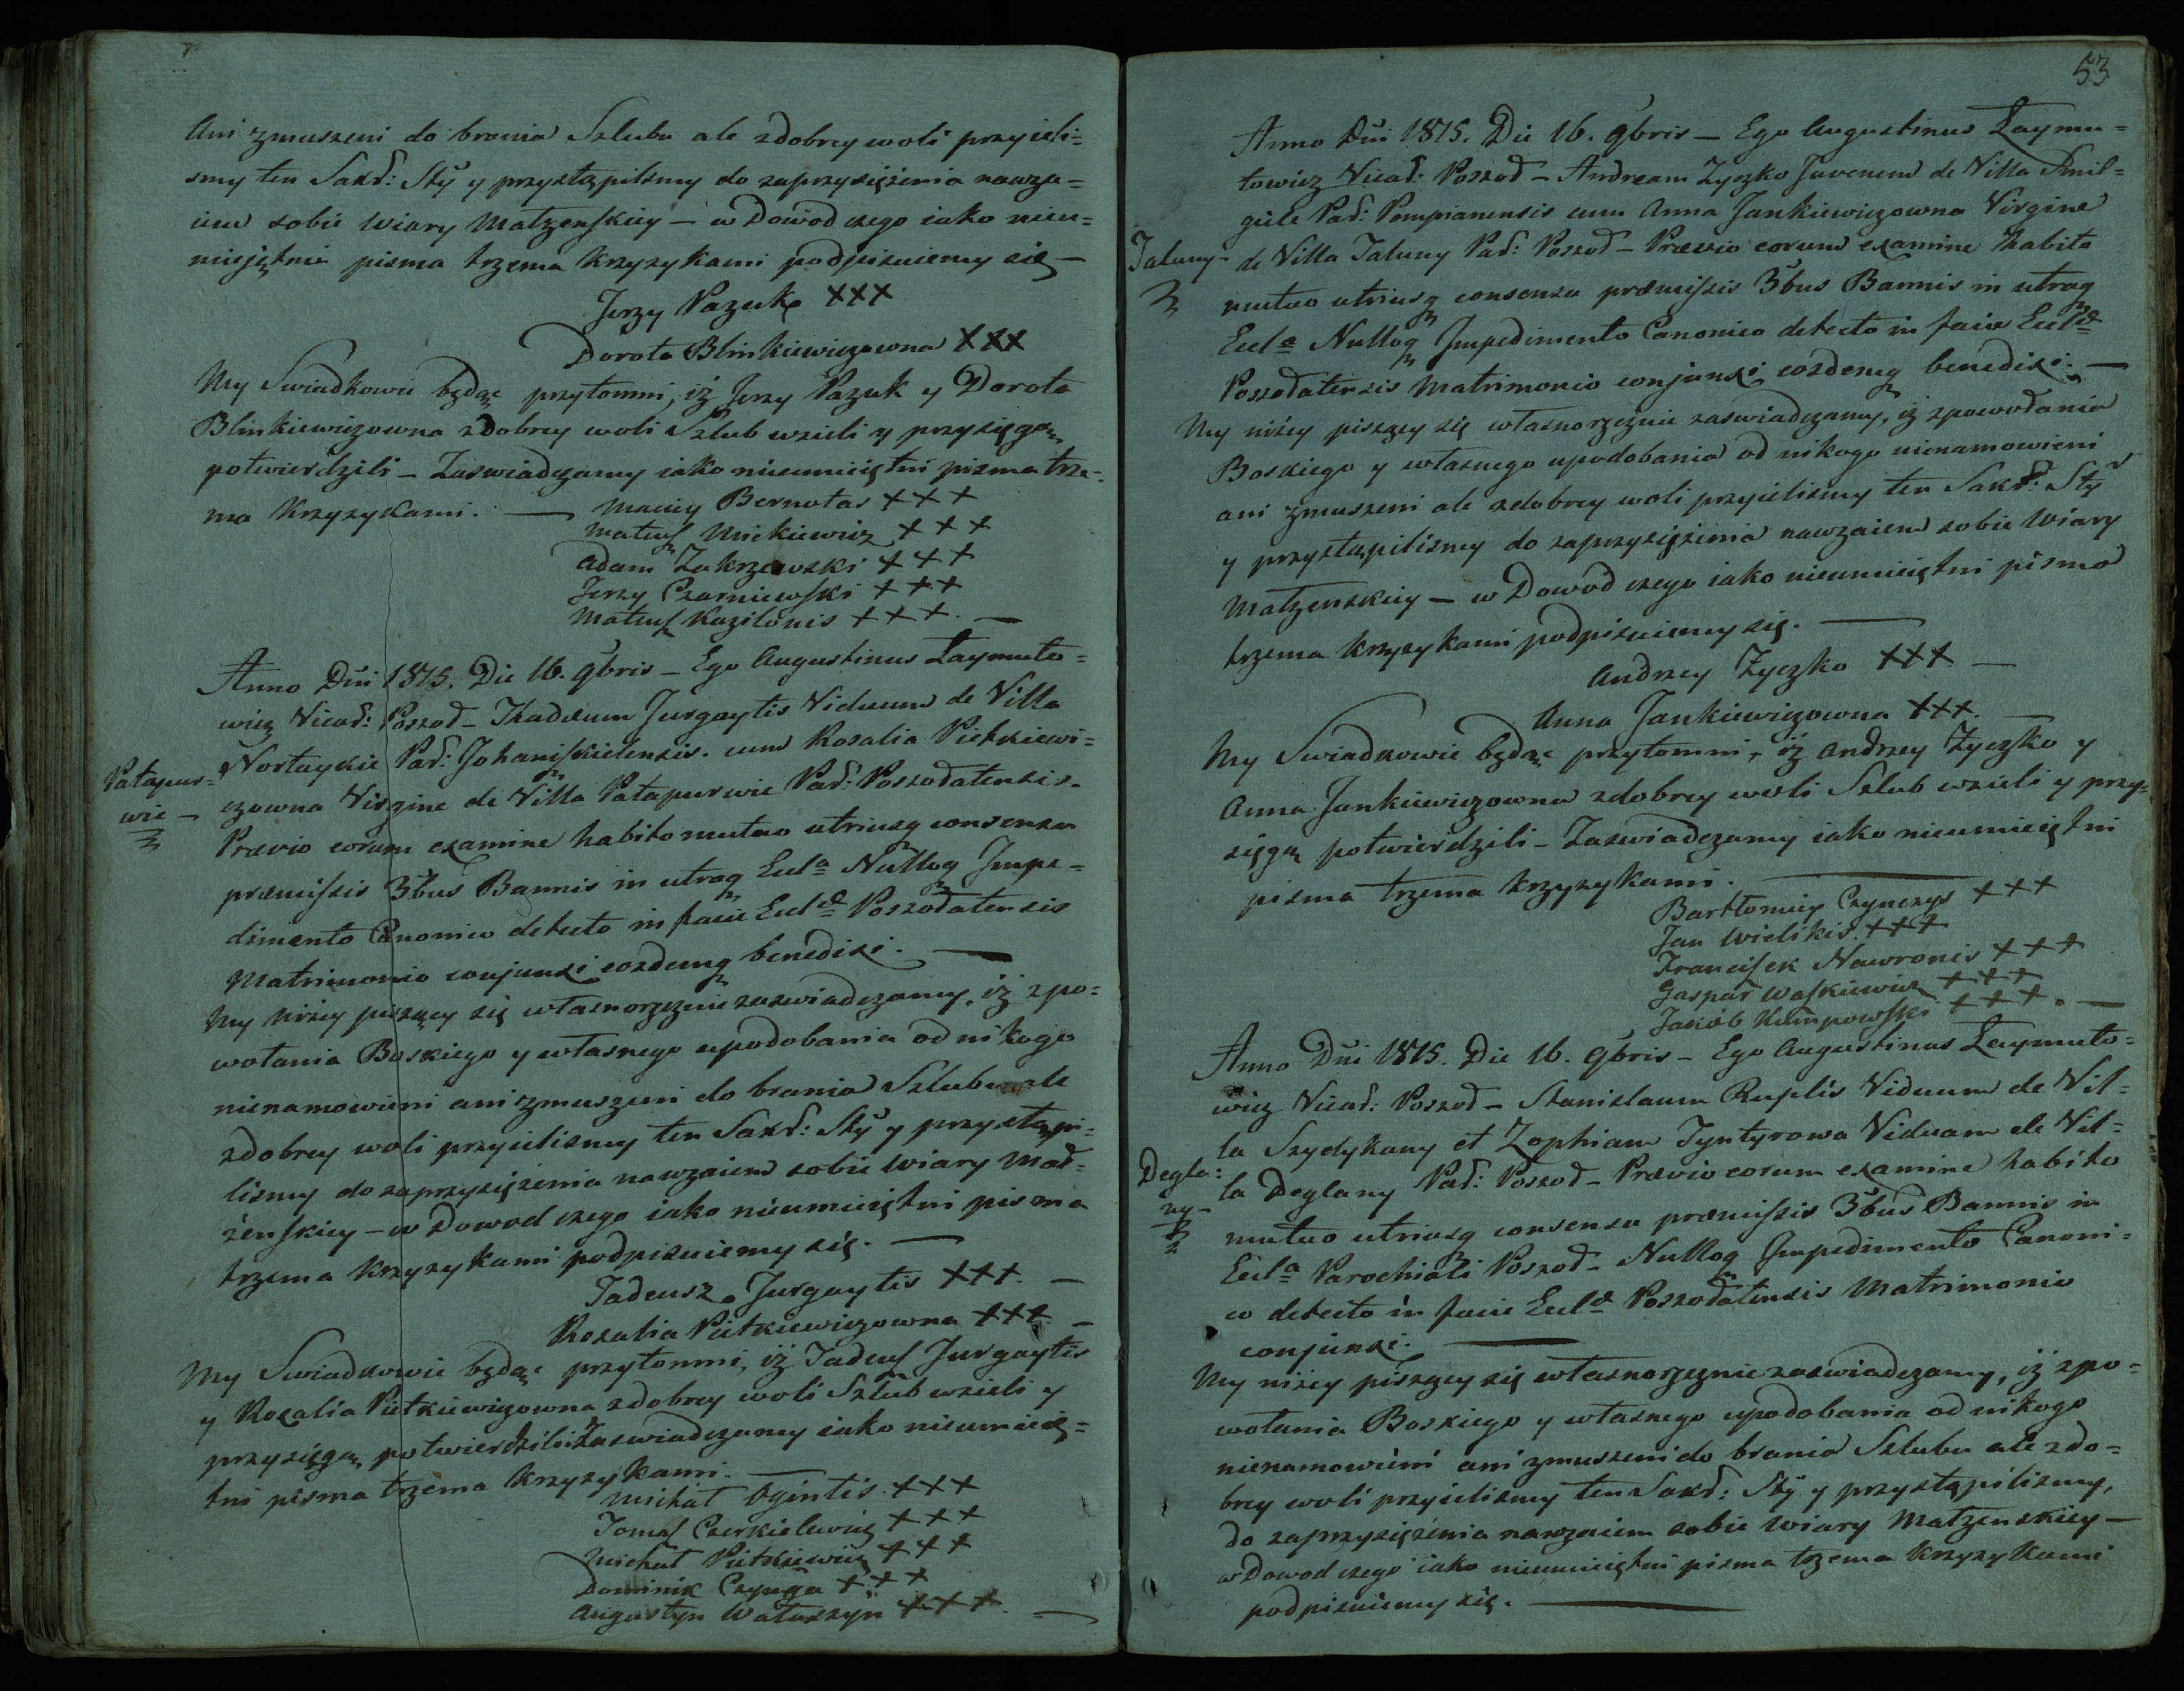 Ani zmuszeni do brania Szlubu ale zdobrey woli przyieli=
smy ten Sakr: Sty y przystąpilismy do zaprzysiężenia nawza=
iem sobie Wiary Małzenskiey — w Dowod czego iako nieu=
mieiętni pisma trzema krzyzykami podpisuiemy się —
Jerzy Pazuk XXX
Dorota Blinkiewiczowna XXX
My Swiadkowie będąc przytomni, iż Jerzy Pazuk y Dorota
Blinkiewiczowna zdobrey woli Szlub wzieli y przysięgą
potwierdzili — Zaswiadczamy iako nieumieiętni pisma trze=
ma krzyzykami. — Maciey Bernotas +++
Mateusz Mickiewicz +++
Adam Zakrzewski +++
Jerzy Czarniewski +++
Mateusz Kazilonis +++. —
Anno Dni 1815. Die 16. 9bris — Ego Augustinus Laymuto=
wicz Vicar: Poszod — Thadeum Jurgaytis Viduum de Villa
Nortaycie Par: Johaniszkielensis. cum Rosalia Pietkiewi=
Patapur= czowna Virgine de Villa Patapurwie Par: Poszodatensis.
wie — Prævio eorum examine habito mutuo utriusq consensu
3 præmissis 3bus Bannis in utraq Ecla Nulloq Impe=
dimento Canonico detecto in facie Eclæ Poszodatensis
Matrimonio conjunxi eosdemq benedixi. —
My niżey piszący się własnoręcznie zaswiadczamy, iż zpo=
wołania Boskiego y własnego upodobania od nikogo
nienamowieni ani zmuszeni do brania Szlubu ale
zdobrey woli przyielismy ten Sakr: Sty y przystąpi=
lismy do zaprzysiężenia nawzaiem sobie Wiary Mał=
żenskiey — w Dowod czego iako nieumieiętni pisma
trzema krzyzykami podpisuiemy się. —
Tadeusz Jurgaytis +++. —
Rozalia Pietkiewiczowna +++ —
My Swiadkowie będąc przytomni, iż Tadeusz Jurgaytis
y Rozalia Pietkiewiczowna zdobrey woli Szlub wzieli y
przysięgą potwierdzili Zaswiadczamy iako nieumieię=
tni pisma trzema krzyzykami. —
Michał Ogintis. +++
Tomasz Czerkielewicz +++
Michał Pietkiewicz +++
Dominik Czyuga +++
Augustyn Watuszyn +++. —
53
Anno Dni 1815. Die 16. 9bris — Ego Augustinus Laymu=
towicz Vicar: Poszod — Andream Zyczko Juvenem de Villa Smil=
gule Par: Pompianensis cum Anna Jankiewiczowna Virgine
Taluny — de Villa Taluny Par: Poszod — Prævio eorum examine habito
3 mutuo utriusq consensu præmissis 3bus Bannis in utraq
Ecla Nulloq Impedimento Canonico detecto in facie Eclæ
Poszodatensis Matrimonio conjunxi eosdemq benedixi. —
My niżey piszący się własnoręcznie zaswiadczamy, iż zpowołania
Boskiego y własnego upodobania od nikogo nienamowieni
ani zmuszeni ale zdobrey woli przyielismy ten Sakr: Sty
y przystąpilismy do zaprzysiężenia nawzaiem sobie Wiary
Małzenskiey — w Dowod czego iako nieumieiętni pisma
trzema krzyzykami podpisuiemy się. —
Andrzey Zyczko +++ —
Anna Jankiewiczowna +++.
My Swiadkowie będąc przytomni, iż Andrzey Zyczko y
Anna Jankiewiczowna zdobrey woli Szlub wzieli y przy=
sięgą potwierdzili — Zaswiadczamy iako nieumieiętni
pisma trzema krzyzykami. —
Bartłomiey Czynczys +++
Jan Wielikis. +++
Franciszek Nawronis +++
Gaspar Waskiewicz +++
Jakob Klimpowski +++. —
Anno Dni 1815. Die 16. 9bris — Ego Augustinus Laymuto=
wicz Vicar: Poszod — Stanislaum Ruplis Viduum de Vil=
la Szydykany et Zophiam Tyntyrowa Viduam de Vil=
Degla: la Deglany Par: Poszod — Prævio eorum examine habito
ny — mutuo utriusq consensu præmissis 3bus Bannis in
Ecla Parochiali Poszod — Nulloq Impedimento Canoni=
co detecto in facie Eclæ Poszodatensis Matrimonio
conjunxi. —
My niżey piszący się własnoręcznie zaswiadczamy, iż zpo=
wołania Boskiego y własnego upodobania od nikogo
nienamowieni ani zmuszeni do brania Szlubu ale zdo=
brey woli przyielismy ten Sakr: Sty y przystąpilismy,
do zaprzysiężenia nawzaiem sobie Wiary Małzenskiey —
w Dowod czego iako nieumieiętni pisma trzema krzyzykami
podpisuiemy się. —